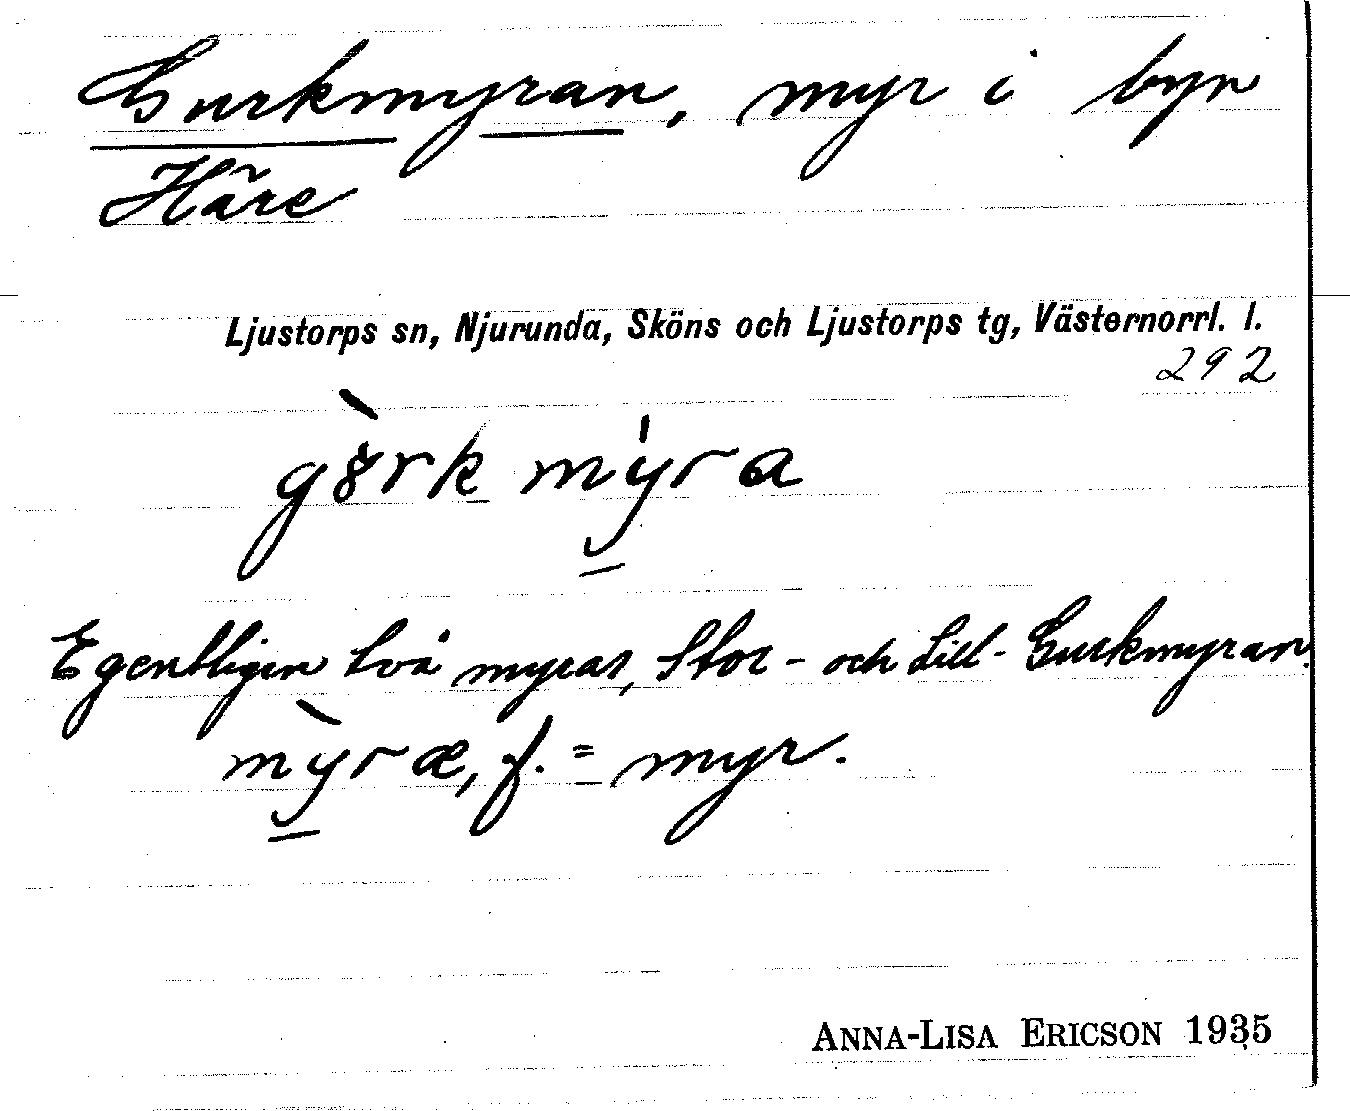 Gurkmyran, myr i byn
Häre
Ljustorps sn, Njurunda, Sköns och Ljustorps tg, Västernorrl. l.
292
myra
Egentligen två myrar, Stor- och Lill-Gurkmyran.
myræ, f. = myr.
ANNA-LISA ERICSON 1935